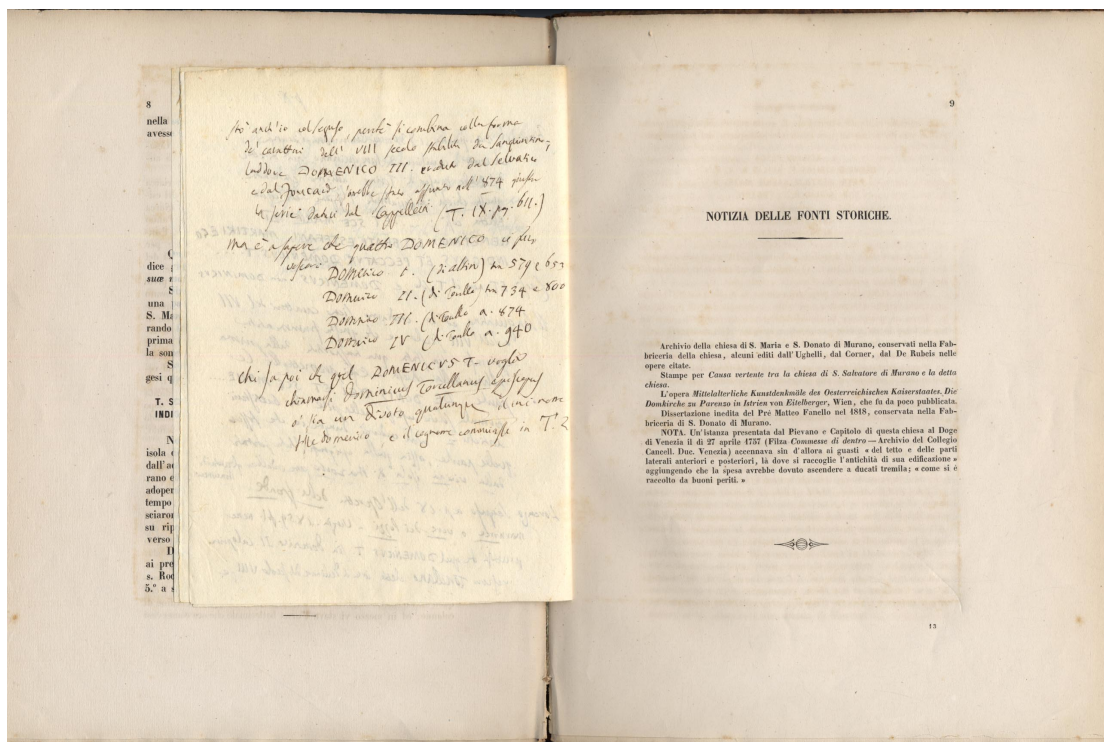 8
nella
avess
dice
suæ
S
una
S. Ma
rando
prima
la son
S
gesi q
T. S
INDI
N
isola
dall'a
rano e
adoper
tempo
sciaron
su rip
verso
I
ai pre
s. Roc
5.° a s
stò anch'io col seguso, perchè si combina colla forma
de' caratteri dell' VIII secolo stabilita da
laddove DOMENICO III. dal Selvatico
e dal Foucard sarebbe stato assunto nell' 874 giusta
la serie dataci dal Cappelletti (T. IX. pag. 611.)
ma è a sapere che quattro DOMENICO ci furo
vescovi Domenico I. (di altino) tra 579 e
Domenico II. (di Torcello) tra 734 e 800
Domenico III. (di Torcello a. 874
Domenico IV (di Torcello a. 940
chi sa poi che quel DOMENICUS T. voglia
chiamarsi Dominicus Torcellanus episcopus
o sia un divoto qualunque il cui nome
fosse domenico e il cognome cominciasse in T.?
9
NOTIZIA DELLE FONTI STORICHE.
Archivio della chiesa di S. Maria e S. Donato di Murano, conservati nella Fab-
briceria della chiesa, alcuni editi dall'Ughelli, dal Corner, dal De Rubeis nelle
opere citate.
Stampe per Causa vertente tra la chiesa di S. Salvatore di Murano e la detta
chiesa.
L'opera Mittelalterliche Kunstdenkmäle des Oesterreichischen Kaiserstaates, Die
Domkirche zu Parenzo in Istrien von Eitelberger, Wien, che fu da poco pubblicata.
Dissertazione inedita del Prè Matteo Fanello nel 1818, conservata nella Fab-
briceria di S. Donato di Murano.
NOTA. Un'istanza presentata dal Pievano e Capitolo di questa chiesa al Doge
di Venezia il dì 27 aprile 1757 (Filza Commesse di dentro — Archivio del Collegio
Cancell. Duc. Venezia) accennava sin d'allora ai guasti « del tetto e delle parti
laterali anteriori e posteriori, là dove si raccoglie l'antichità di sua edificazione »
aggiungendo che la spesa avrebbe dovuto ascendere a ducati tremila; « come si è
raccolto da buoni periti. »
13